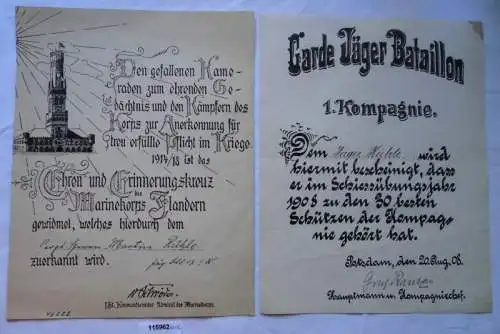 Den gefallenen Kame-
raden zum ehrenden Ge-
dächtnis und den Kämpfern des
Korps zur Anerkennung für
treu erfüllte Pflicht im Kriege
1914/18 ist das
Ehren und Erinnerungskreuz
des
Marinekorps Flandern
gewidmet, welches hierdurch dem
zuerkannt wird.
Garde Jäger Bataillon
1. Kompagnie.
Dem Jäger wird
hiermit bescheinigt, dass
er im Schiessübungsjahr
1908 zu den 30 besten
Schützen der Kompag-
nie gehört hat.
Potsdam, den 20. Aug. 08.
Hauptmann u. Kompagniechef.
115962